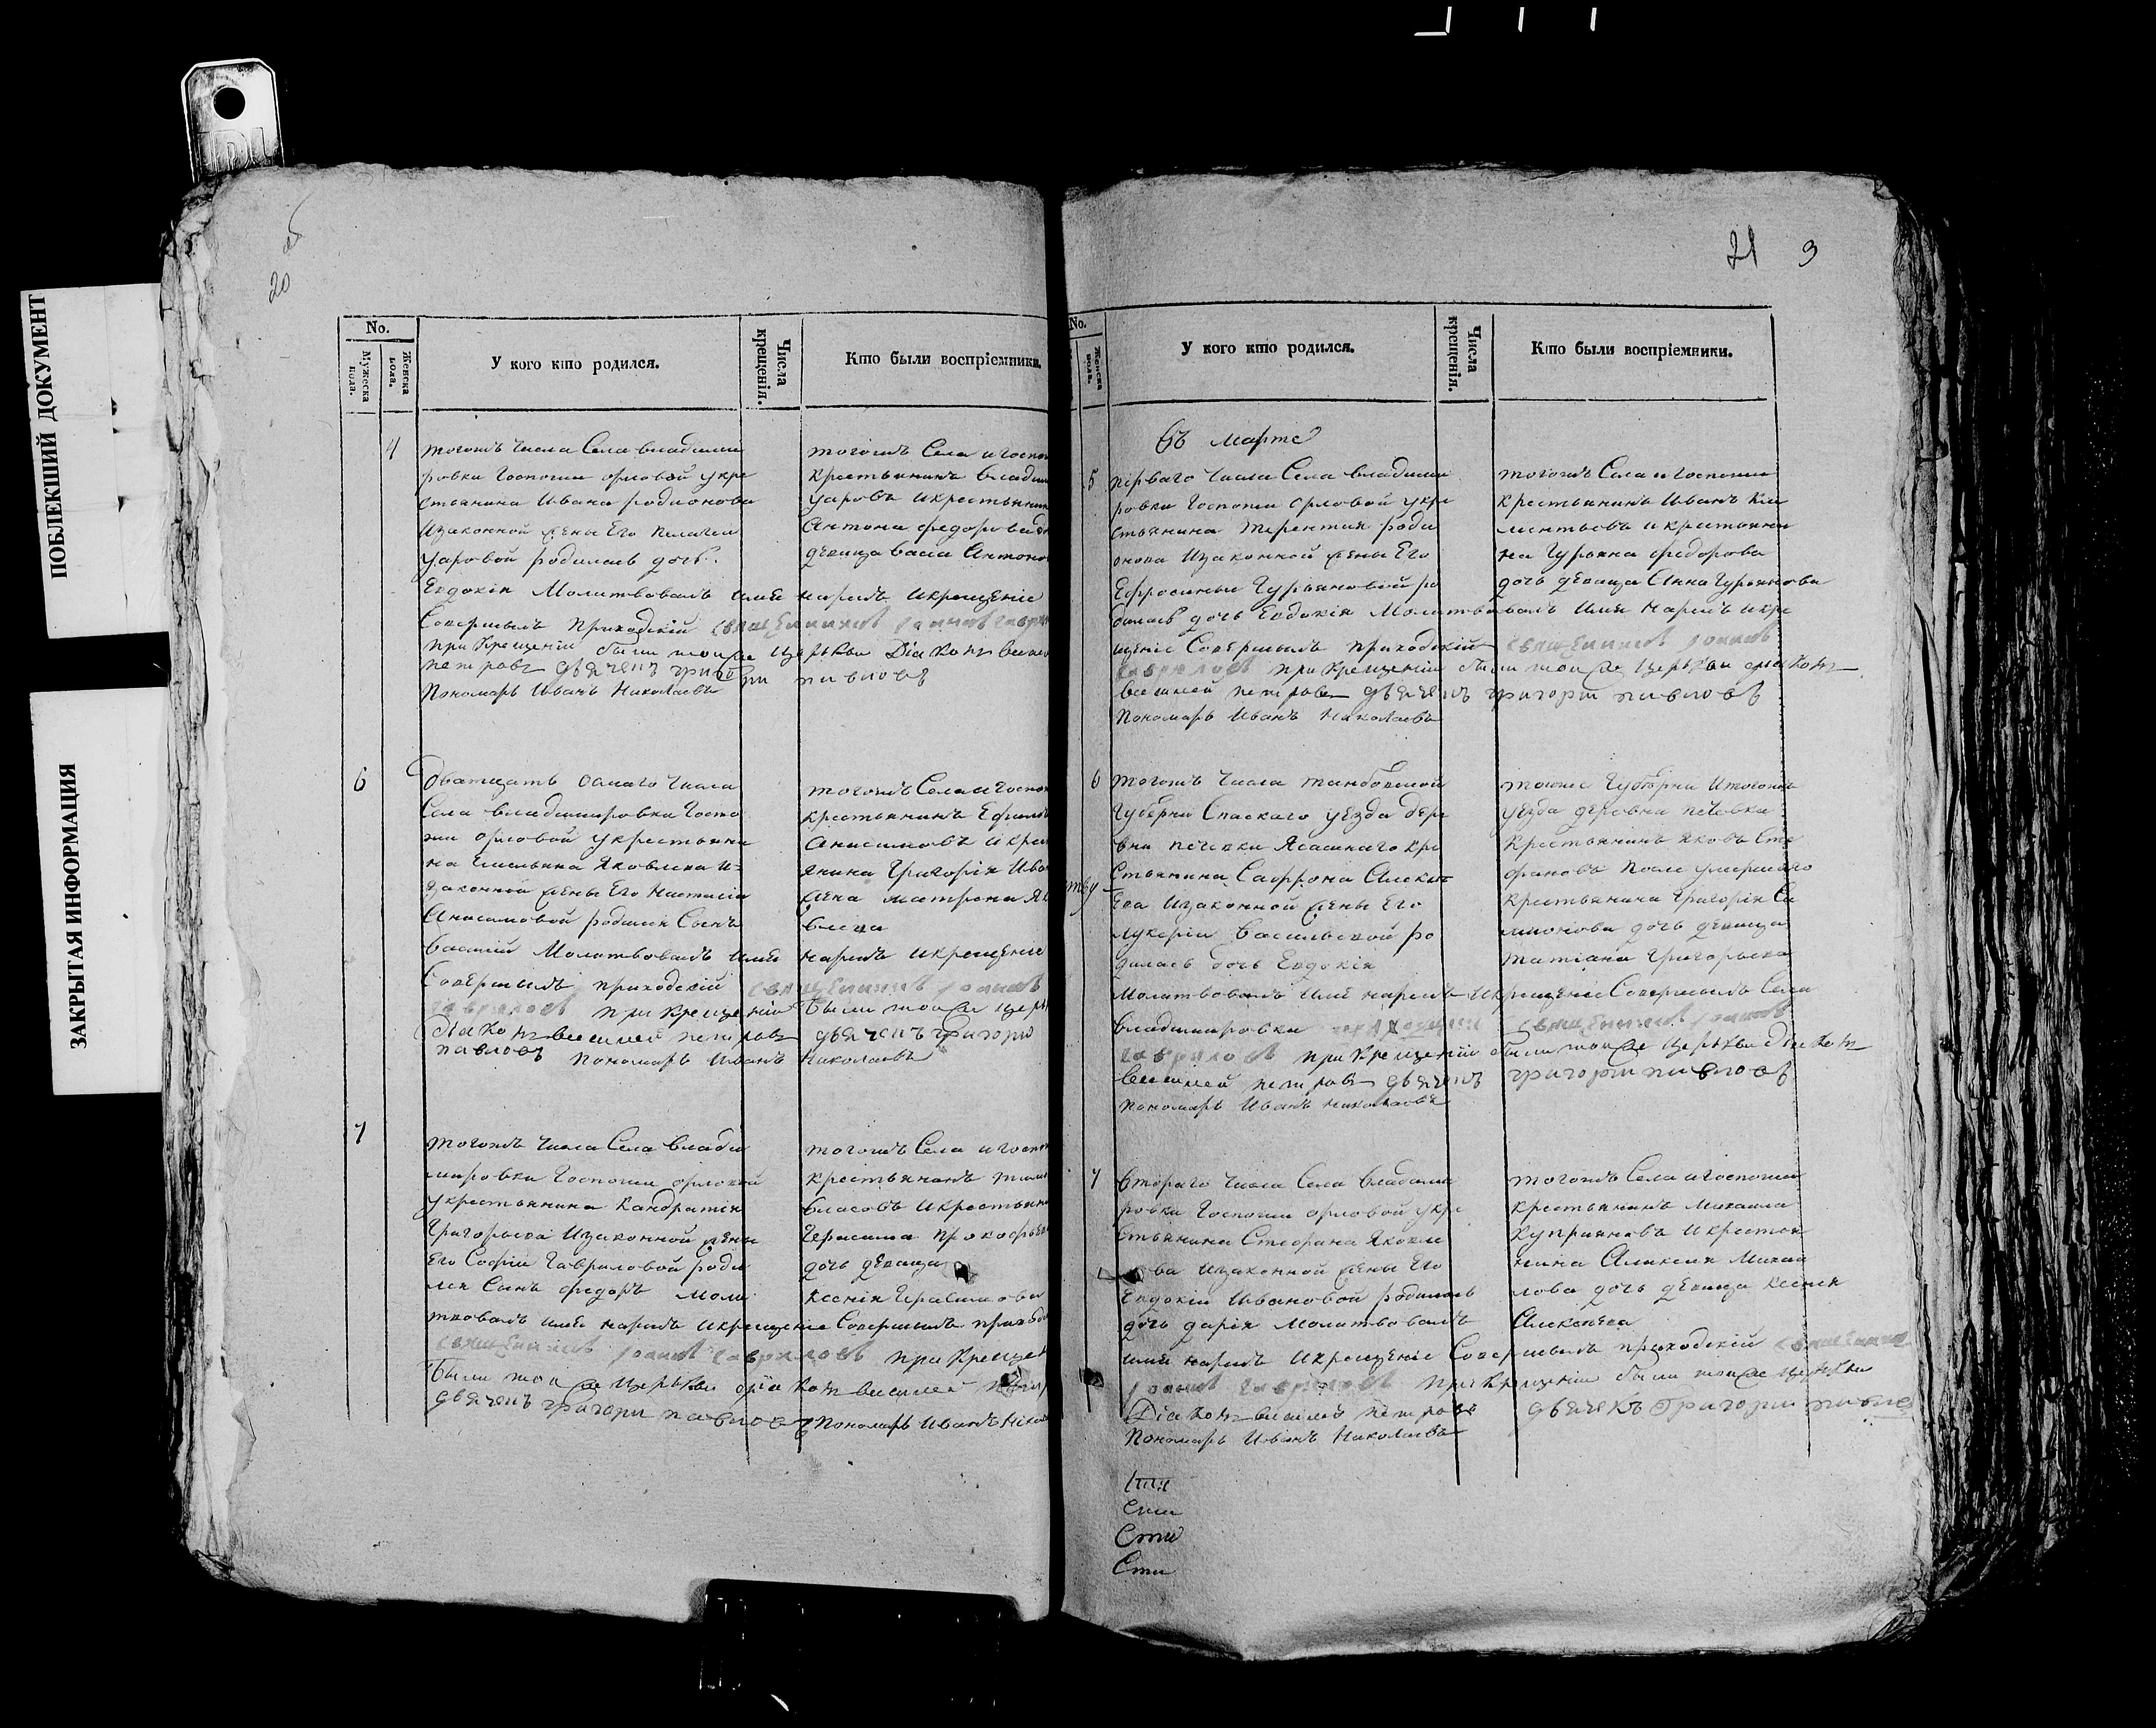 ПОБЛЕКШИЙ ДОКУМЕНТ
ЗАКРЫТАЯ ИНФОРМАЦИЯ
20
No.
Мужеска пола.
Женска пола.
У кого кто родился.
Числа крещенія.
Кто были воспріемники.
4
тогожъ числа Села владими
ровки Госпожи орловой укре
стьянина Ивана родионова
Изаконной жены Его Пелагеи
Уаровой родилась дочь
Евдокія Молитвовалъ имя нарилъ Икрещеніе
Совершилъ Приходскій священникъ
при Крещеніи были тоиже церкви Діаконъ
петровъ дьячекъ григори павловъ
Пономарь Иванъ Николаевъ
тогожъ Села игоспо
крестьянинъ Влади
Уаровъ Икрестьянин
Антона федорова
девица васа Антоно
6
Села владимировки Госпо
жи орловой укрестьяни
на Емельяна Яковлева И
законной жены Его Настасіи
Анисимовой родился Сынъ
Василій Молитвовалъ имя нарилъ Икрещеніе
Совершилъ приходскій священникъ
гавриловъ при Крещеніи были тоиже церк
діаконъ василей петровъ дьячекъ григори
павловъ Пономарь Иванъ Николаевъ
тогожъ Села игоспо
крестьянинъ Ефимъ
Анисимовъ Икрес
янина Григорія Ива
жена матрона Як
влева
7
тогожъ числа Села влади
мировки Госпожи орловой
укрестьянина Кандратія
Григорьева Изаконной жены
Его Софіи Гавриловой роди
лся Сынъ федоръ Моли
твовалъ имя нарилъ Икрещеніе Совершилъ приход
священникъ гавриловъ при Крещен
были тоиже церкви діаконъ василей
дьячекъ григори павловъ Пономарь Иванъ
тогожъ Села игоспо
крестьянинъ
власовъ Икрестьян
Герасима прокофье
дочь девица
Ксенія Герасимова
21 3
No.
Женска пола.
У кого кто родился.
Числа крещенія.
Кто были воспріемники.
Въ марте
5
перваго числа Села владими
ровки Госпожи орловой укре
стьянина терентия роди
онова Изаконной жены Его
Ефросиньи Гурьяновой ро
дилась дочь Евдокія Молитвовалъ имя нарилъ икре
щеніе Совершилъ приходскій священникъ
гавриловъ при крещеніи были тоиже церкви діаконъ
василей петровъ дьячекъ григори павловъ
Пономарь Иванъ Николаевъ
тогожъ Села игоспожи
крестьянинъ Иванъ Кли
ментьевъ икрестьяни
на Гурьяна федорова
дочь девица Анна Гурьянова
6
тогожъ числа танбовской
Губерни Спаскаго уезда дере
вни Ясашнаго кре
стьянина Сафрона Алек
ева Изаконной жены Его
лукеріи Васильевой ро
дилась дочь Евдокія
Молитвовалъ имя нарилъ Икрещеніе Совершилъ Села
Владимировки священникъ
гавриловъ при Крещеніи были тоиже церкви діаконъ
василей петровъ дьячекъ григори павловъ
Пономарь Иванъ Николаевъ
тоиже Губерни Итогожъ
уезда деревни
Крестьянинъ яковъ Сте
фановъ После умершаго
крестьянина Григорія Си
монова дочь девица
татіана Григорьева
7
втораго числа Села Владими
ровки Госпожи орловой укре
стьянина Стефана Яковле
ва Изаконной жены Его
Евдокіи Ивановой родилась
дочь дарія Молитвовалъ
имя нарилъ Икрещеніе Совершилъ приходскій священникъ
гавриловъ при Крещеніи были тоиже церкви
Діаконъ василей петровъ дьячекъ Григори
Пономарь Иванъ Николаевъ
тогожъ Села игоспожи
крестьянинъ Михаила
Куприяновъ Икрестья
нина Алексея Михаи
лова дочь девица Ксенія
Алексеева